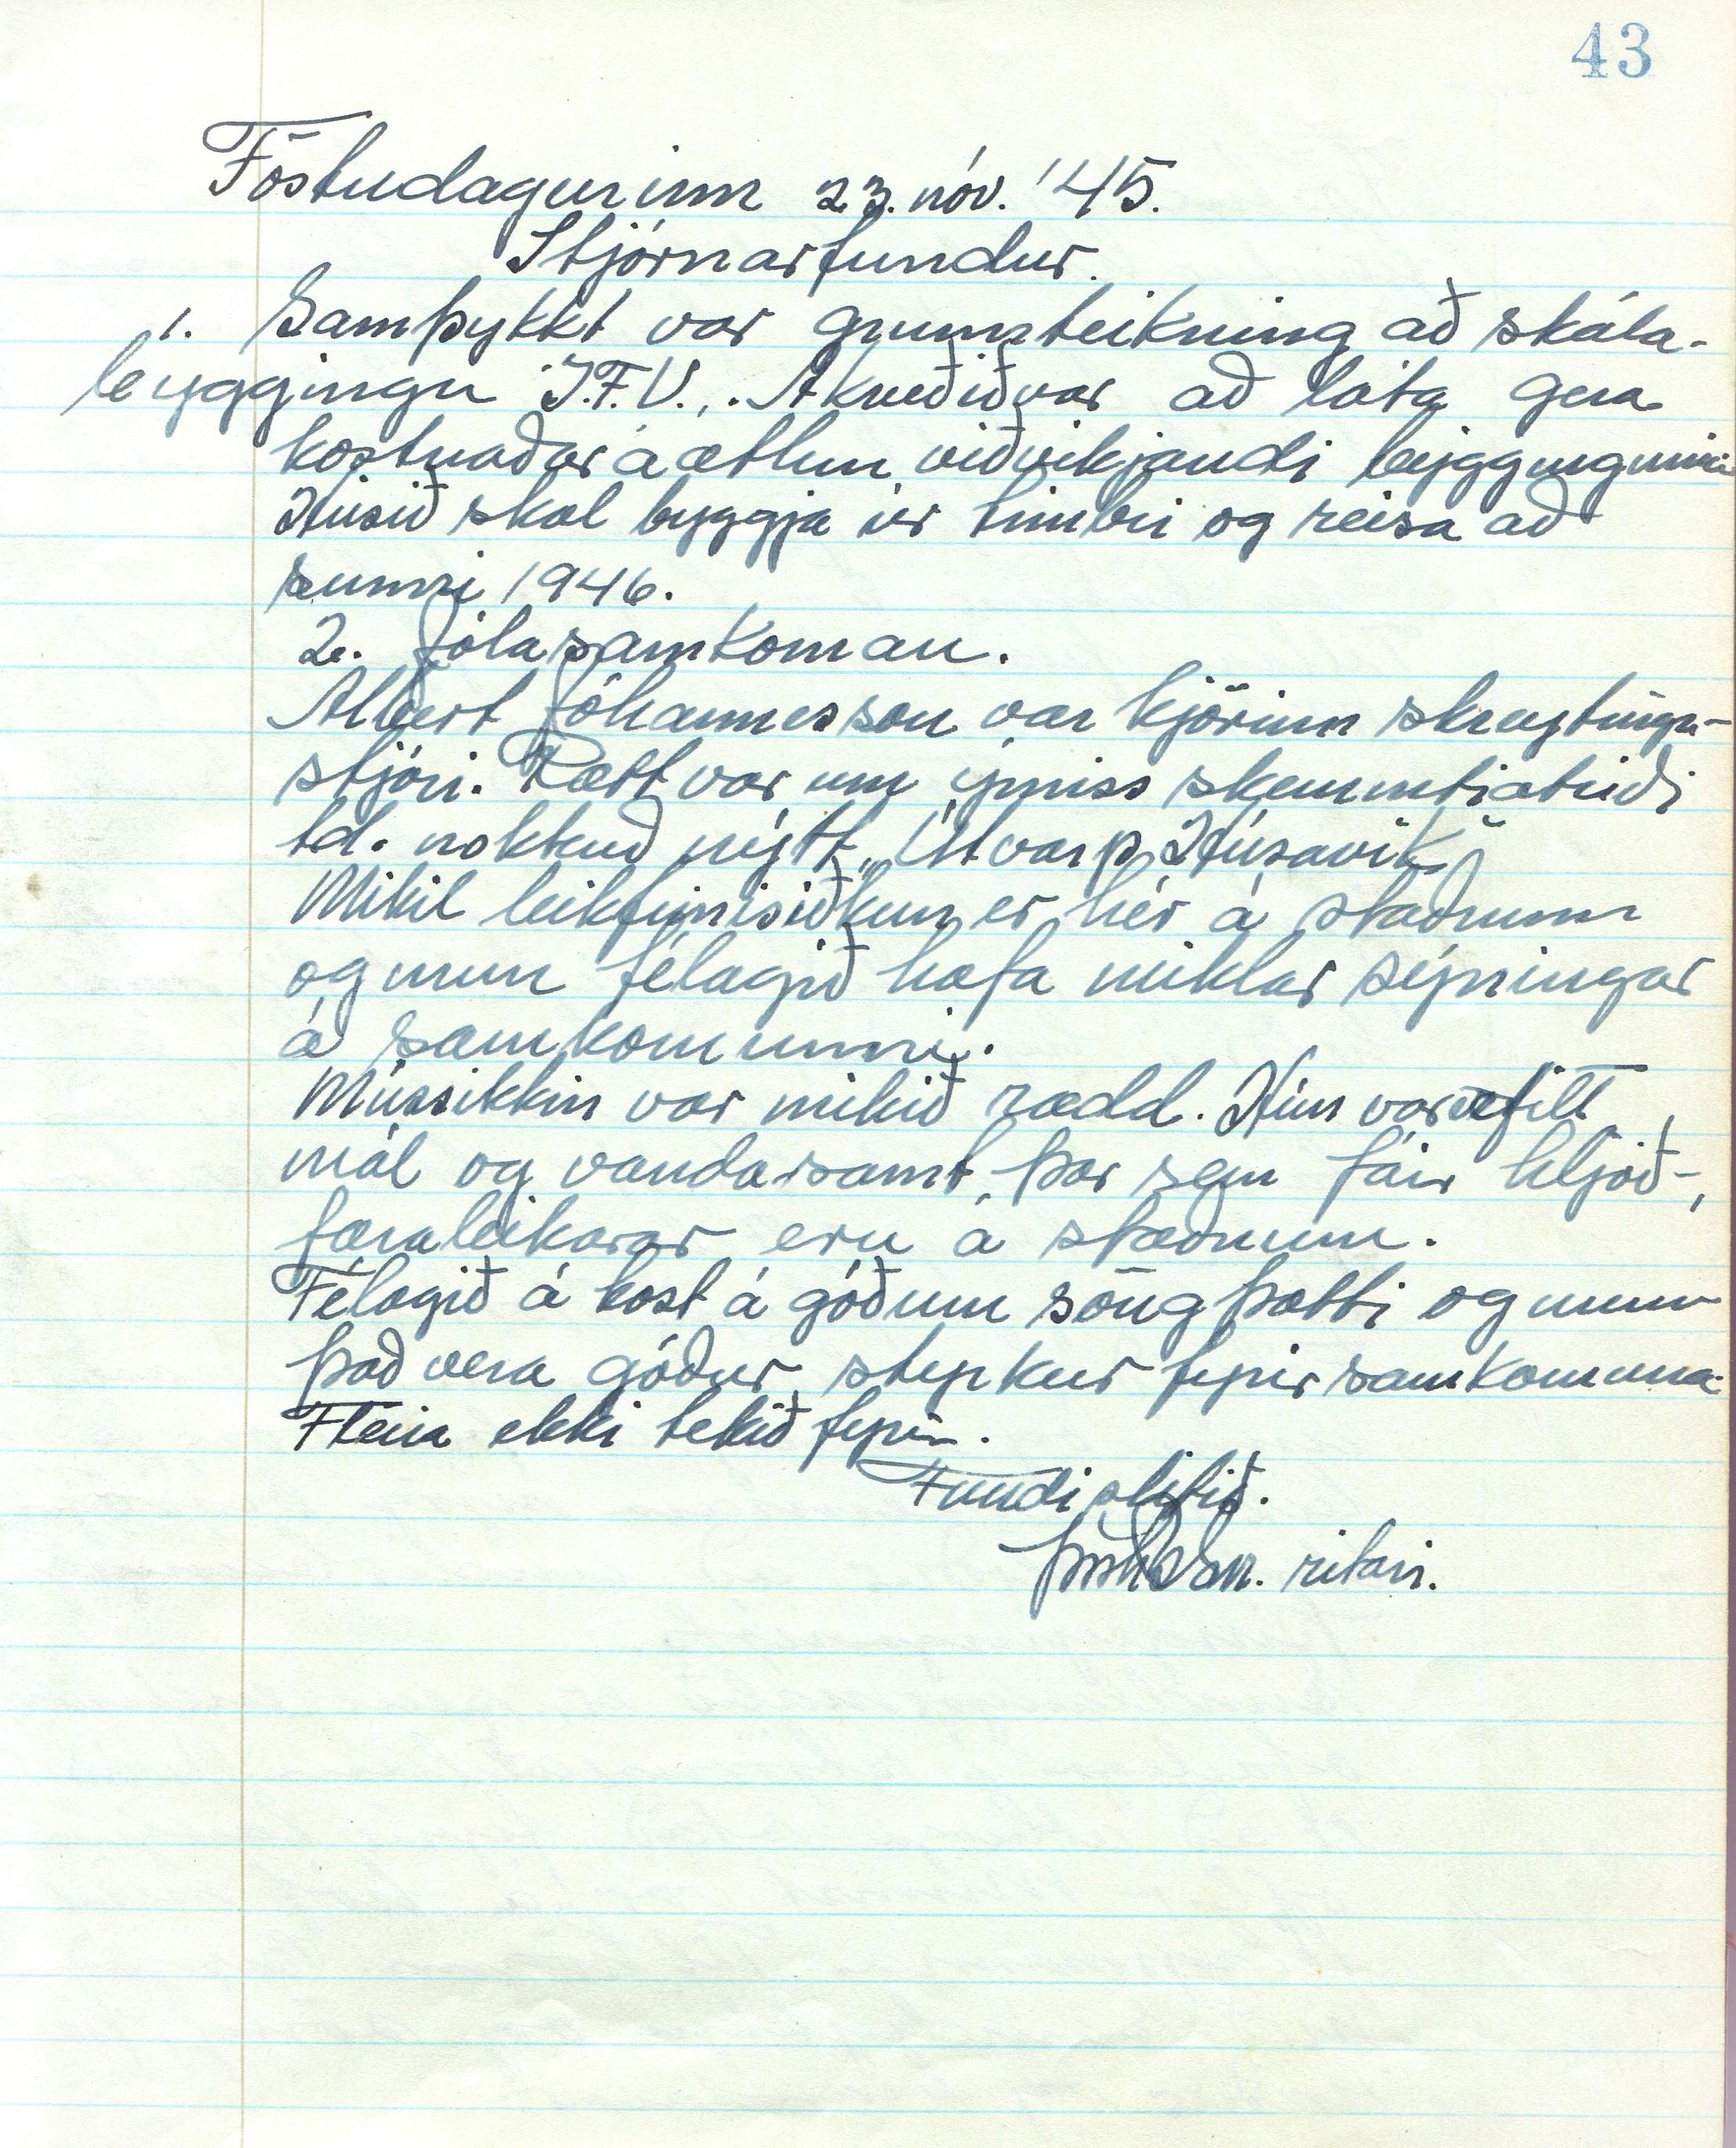 43
Föstudagurinn 23. nóv. '45.
Stjórnarfundur.
1. Samþykkt var grunnteikning að skála-
byggingu Í.F.V.. Akveðið var að láta gera
kostnaðaráætlun viðvikjandi byggingunni
Húsið skal byggja úr timbri og reisa að
sumri 1946.
2. Jólasamkoman.
Albert Jóhannesson var kjörinn skreytinga-
stjóri. Rætt var um ýmiss skemmtiatriði
td. nokkuð nýtt „Útvarp Húsavík“
Mikil leikfimisiðkun er hér á staðnum
og mun félagið hafa miklar sýningar
á samkomunni.
Mússikkin var mikið rædd. Hún var erfitt
mál og vandasamt, þar sem fáir hljóð-
færaleikarar eru á staðnum.
Félagið á kost á góðum söngþætti og mun
það vera góður styrkur fyrir samkomuna.
Fleira ekki tekið fyrir.
Fundi slitið.
ritari.